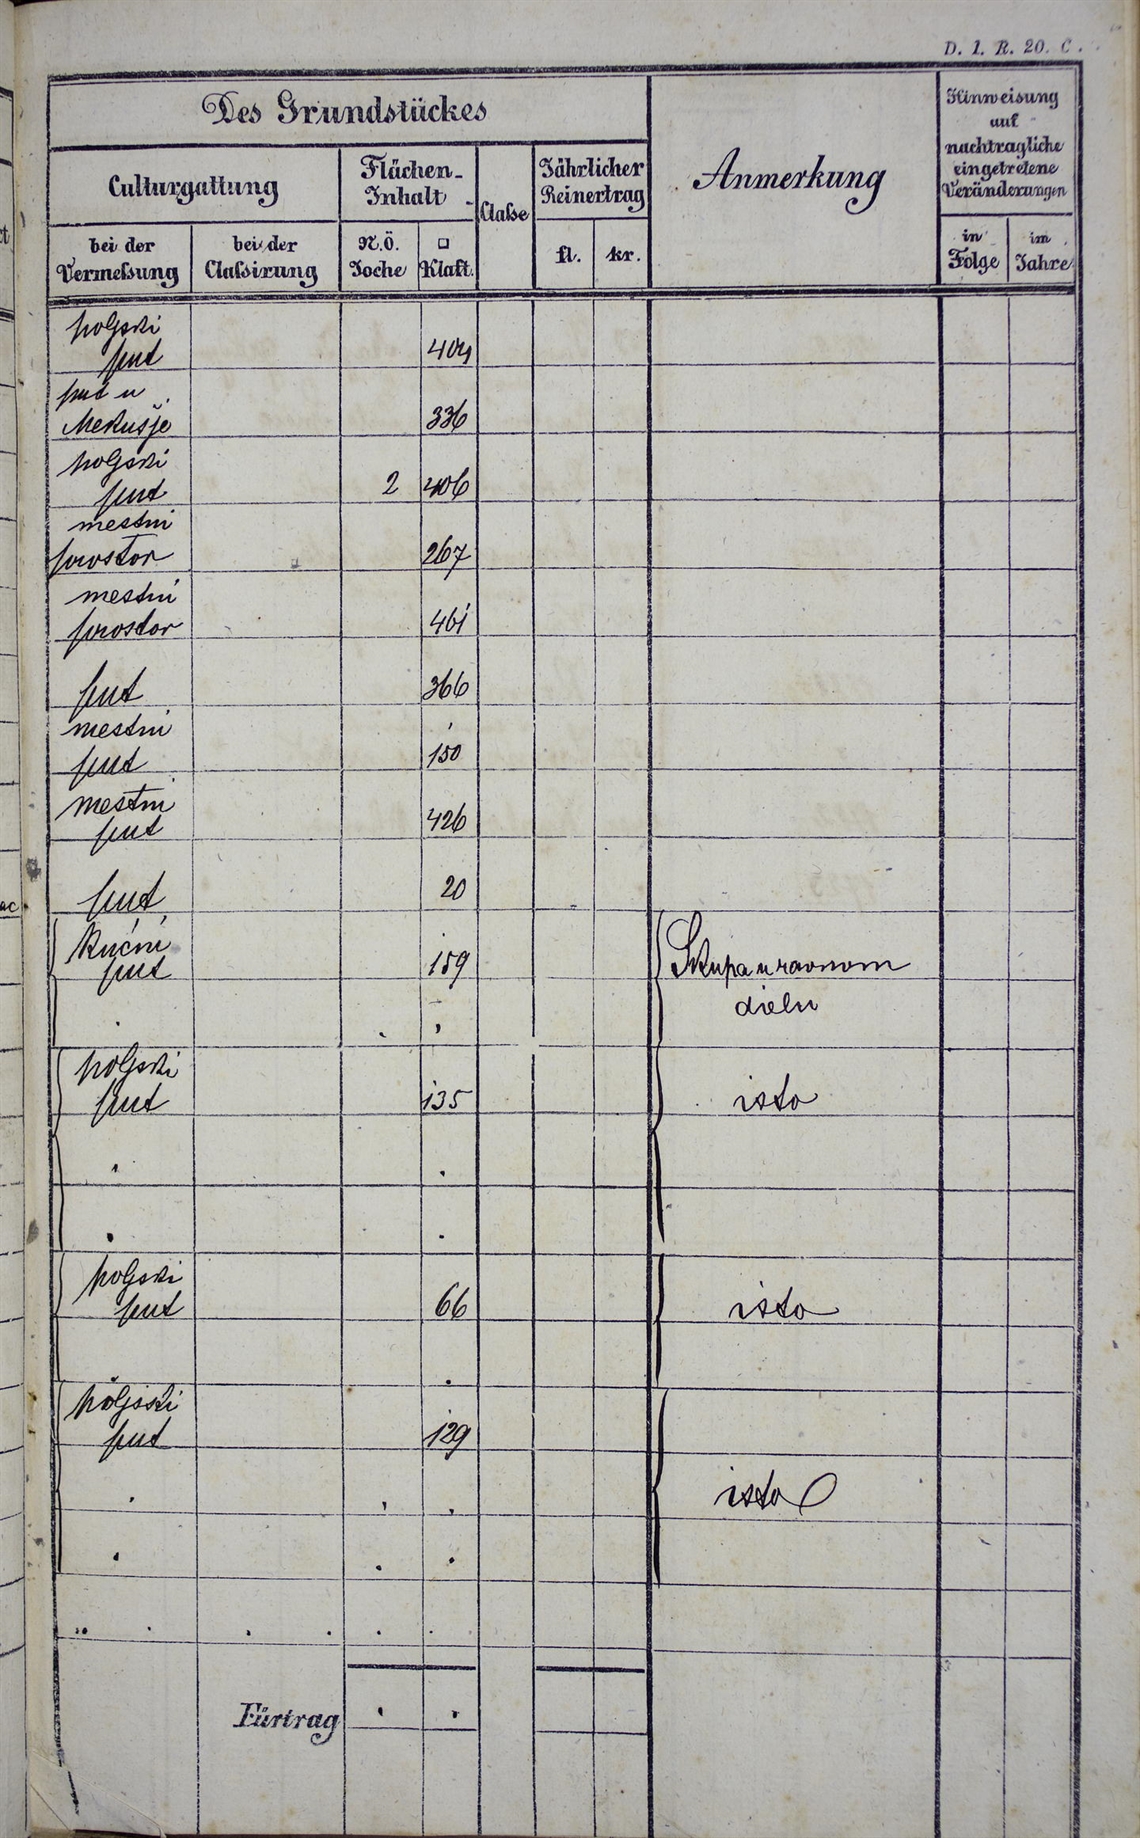 D. 1. R. 20. C.
Des Grundstückes
Anmerkung
Hinweisung
auf
nachtragliche
eingetretene
Veränderungen
Culturgattung
Flächen-
Inhalt
Classe
Jährlicher
Reinertrag
bei der
Vermessung
bei der
Classirung
N.Ö.
Joche
□
Klaft.
fl.
kr.
in
Folge
im
Jahre
poljski
put 404
put u
Mekušje 336
poljski
put 2 406
mestni
prostor 267
mestni
prostor 461
put 366
mestni
put 150
mestni
put 426
put 20
Kućni
put 159 Skupa u ravnom
dielu
poljski
put 135 isto
poljski
put 66 isto
poljski
put 129
isto
Fürtrag